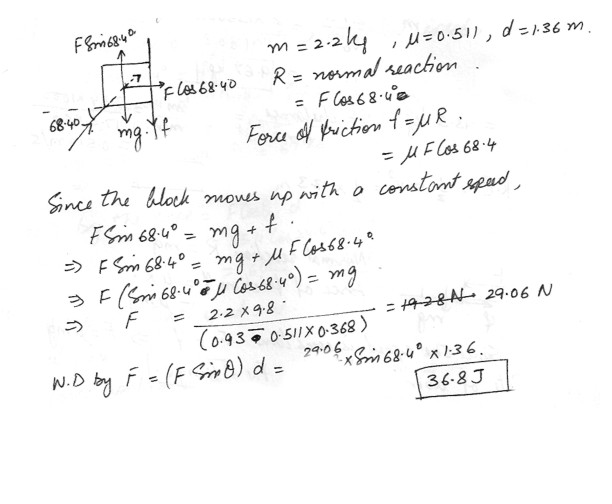 F Sin 68.4°
F Cos 68.40
68.40
mg. f
m = 2.2 kg , μ = 0.511 , d = 1.36 m.
R = normal reaction .
= F Cos 68.4°
Force of friction f = μR .
= μ F Cos 68.4
Since the block moves up with a constant speed,
F Sin 68.4° = mg + f .
⇒ F Sin 68.4° = mg + μ F Cos 68.4°
⇒ F (Sin 68.4° - μ Cos 68.4°) = mg
⇒ F = 2.2 x 9.8 / (0.93 - 0.511 x 0.368) = 19.28 N 29.06 N
W.D by F = (F Sin θ) d = 29.06 x Sin 68.4° x 1.36.
36.8 J